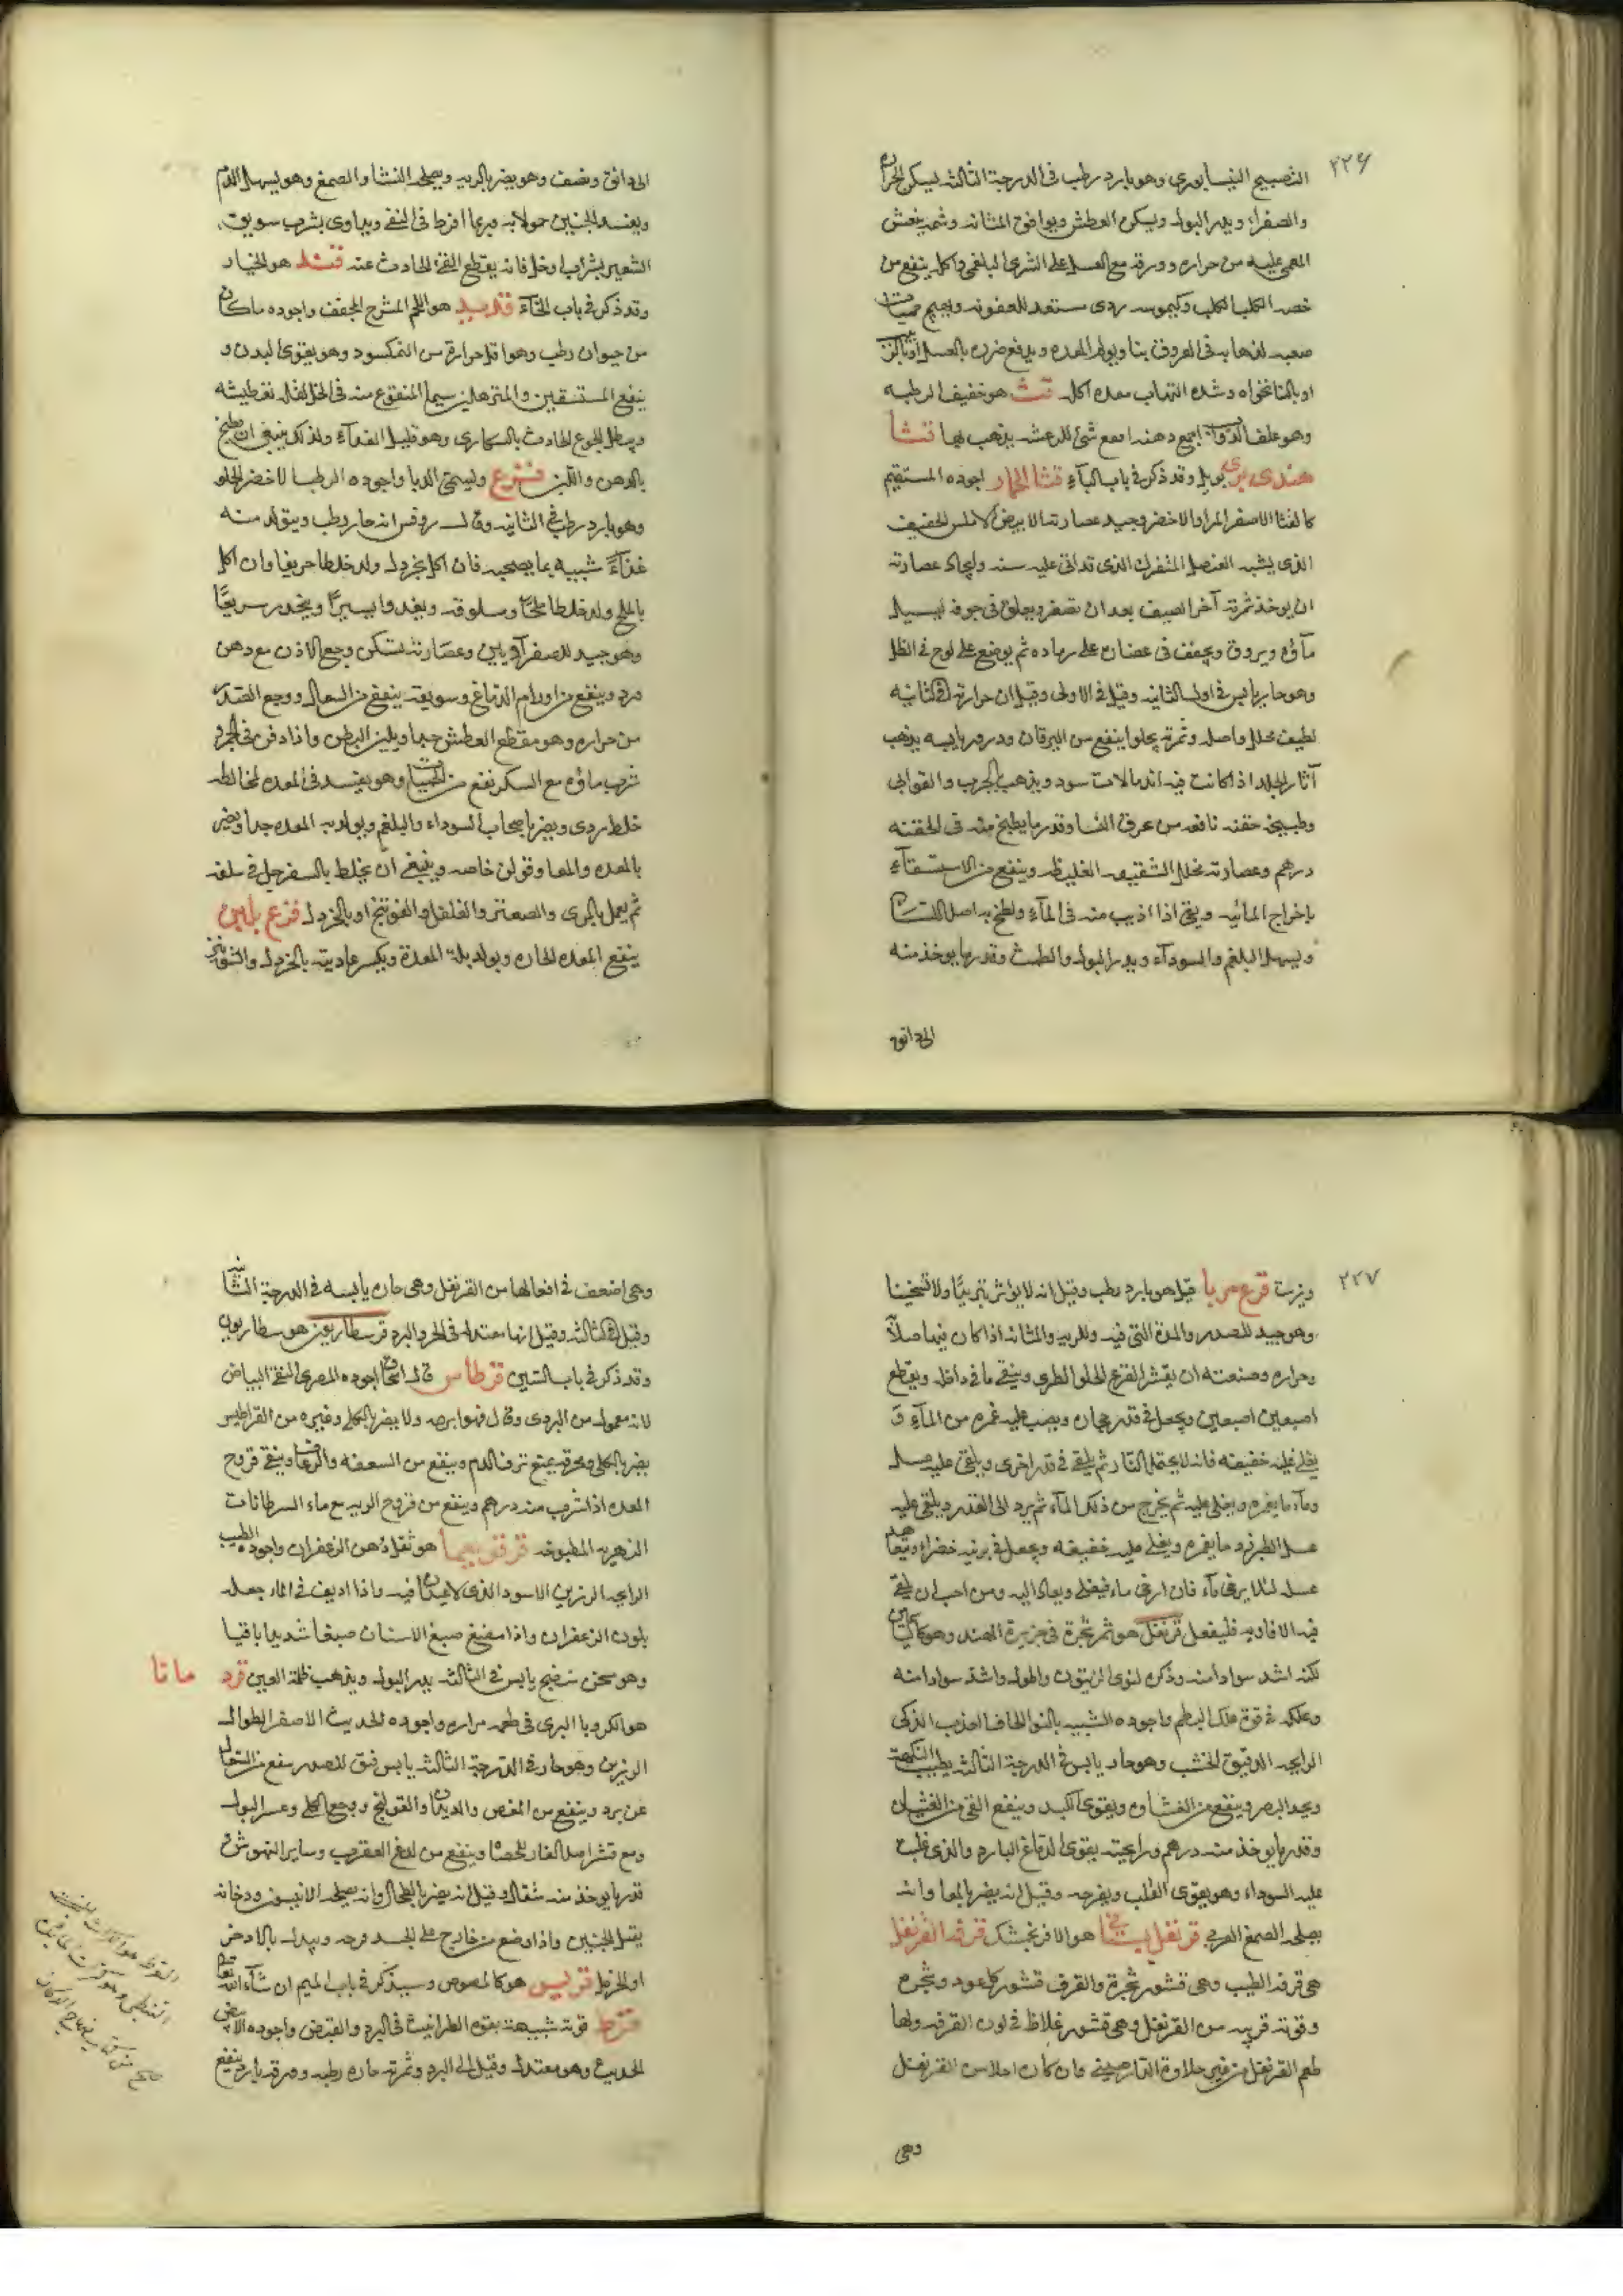 ٢٢٦
النضيج النيسابوري وهو بارد رطب في الدرجة الثالثه ليسكن الحراره
والصفراء ويدر البول ويسكن العطش ويوافق المثانه وشمه ينعش
المغمى عليه من حراره وورقه مع العسل على الشرى البلغمى واكله ينفع من
عضه الكلب الكلب وكيموسه ردى مستعد للعفونه ويهيج حميات
صعبه لذهابه في العروق نيا ويولم المعده ويدفع ضرره بالعسل
او بالنانخواه وشده التهاب معده اكله قت هو خفيف الرطبه
وهو علف الدواب اجمع دهنه انفع شئ للرعشه يذهب بها قثا
هندى برى وقد ذكر في باب البآء قثا الحمار اجوده المستقيم
كالقثا الاصفر المر والاخضر وجيد عصارته الابيض الاملس الخفيف
الذى يشبه العنصل المتفرك الذى قد اتى عليه سنه واتخاذ عصارته
ان يوخذ ثمرته آخر الصيف بعد ان تصفر ويعلق في جوفه ليسيل
مآؤه ويروق ويجفف فى غضار على رماده ثم يوضع على لوح في الظل
وهو حار يابس في اول الثانيه وقيل في الاولى وقيل ان حرارته في الثانيه
لطيف محلل واصله وثمرته يجلو وينفع من اليرقان وذروره يابسه يذهب
آثار الجلد اذا كانت فيه اندمالات سود ويذهب الجرب والقوابى
وطبيخه حقنه نافعه من عرق النسا وقدر ما يطبخ منه في الحقنه
درهم وعصارته محلل الشقيقه الغليظه وينفع من الاستسقآء
باخراج المائيه ويقى اذا اذيب منه في المآء ولطخ به اصل اللسان
ويسهل البلغم والسودآء ويدر البول والطمث وقدر ما يوخذ منه
الى دانق
الى دانق ونصف وهو يضر بالريه ويصلحه النشا والصمغ وهو يسهل الدم
ويفسد الجنين حمولا به وربما افرط فى القئ ويداوى بشرب سويق
الشعير بشراب او خل فانه يقطع القئ الحادث عنه قثد هو الخيار
وقد ذكر في باب الخآء قديد هو اللحم المشرح المجفف واجوده ما كان
من حيوان رطب وهو اقل حرارة من النمكسود وهو يقوى البدن و
ينفع المستسقين والمترهلين سيما المنقوع منه في الخل لقله تعطيشه
ويبطل الجوع الحادث بالسكارى وهو قليل الغذآء ولذلك ينبغى ان يطبخ
بالدهن واللبن قرع وليسمى الدبا واجوده الرطب الاخضر الحلو
وهو بارد رطب في الثانيه وقال روفس انه حار رطب ويتولد منه
غذآء شبيه بما يصحبه فان اكل بخردل ولد خلطا حريفا وان اكل
بالملح ولد خلطا مالحا ومسلوقه ويغدوا يسيرا وينحدر سريعا
وهو جيد للصفرآويين وعصارته تسكن وجع الاذن مع دهن
ورد وينفع من اورام الدماغ وسويقه ينفع من السعال ووجع الصدر
من حراره وهو مقطع العطش جيدا ويلين البطن واذا دفن في الجمر و
شرب ماؤه مع السكر نفع من الحميات وهو يفسد في المعده لمخالطه
خلط ردى ويضر باصحاب السوداء والبلغم ويولد به المعده جدا ويضر
بالمعده والمعا وقولن خاصه وينبغى ان يخلط بالسفرجل في سلقه
ثم يعمل بالمرى والصعتر والفلفل والفوتنج او بالخردل قرع بلبن
ينفع المعده الحاره ويولد بلة المعدة ويكسر عاديته بالخردل والشونيز
٢٢٧
وزيت قرع مربا قيل هو بارد رطب وقيل انه لا يؤثر تبريدا ولا تسخينا
وهو جيد للصدر والمدة التي فيه وللريه والمثانه اذا كان فيها صلآ
وحراره وصنعته ان يقشر القرع الحلو الطرى وينقى ما في داخله ويقطع
اصبعين اصبعين ويجعل في قدر حجاره ويصب عليه غمره من المآء و
يغلى غليه خفيفه فانه لا يحتمل النار ثم يلقى في قدر اخرى ويلقى عليه عسل
ومآء ما يغمره ويغلى عليه ثم يخرج من ذلك المآء ثم يرد الى القدر ويلقى عليه
عسل الطبرزد ما يغمره ويغلى غليه خفيفه ويجعل في برنيه خضراء ويتعاهد
عسله لئلا يرخى مآء فان ارخى ماء فيغلى ويعاد اليه ومن احب ان يلقى
فيه الافاويه فليفعل قرنفل هو ثمر شجرة في جزيرة الهند وهو كالياسمين
لكنه اشد سوادا منه وذكره كنوى الزيتون واطول واشد سوادا منه
وعلكه في قوة علك البطم واجوده الشبيه بالنوا الجاف العذب الذكى
الرايحه الدقيق الخشب وهو حار يابس في الدرجة الثالثه يطيب النكهة
ويحد البصر وينفع من الغشاوه ويقوى الكبد وينفع القئ من الغثيان
وقدر ما يوخذ منه درهم ورايحته يقوى الدماغ البارد والذى غلب
عليه السوداء وهو يقوى القلب ويفرحه وقيل انه يضر بالمعا وانه
يصلحه الصمغ العربى قرنفل بستانى هو الافرنجمشك قرفه القرنفل
هي قرفه الطيب وهى قشور شجرة والقرف قشور كالعود وشجره
وقوته قريبه من القرنفل وهى قشور غلاظ في لون القرفه ولها
طعم القرنفل من غير حلاوة الدارصينى وان كان احلا من القرنفل
وهى
وهى اضعف في افعالها من القرنفل وهى حاره يابسه في الدرجة الثانيه
وقيل في الثالثه وقيل انها معتدله في الحر والبرد قرسطاريون هو سطاريون
وقد ذكر في باب السين قرطاس قال اجوده المصرى النقى البياض
لانه معمول من البردى وقال قوم ابرصه ولا يضر بالكلى وغيره من القراطيس
يضر بالكلى ومحرقه يمنع نزف الدم وينفع من السعفه والرعاف وينقى قروح
المعده اذا شرب منه درهم وينفع من قروح الريه مع ماء السرطانات
النهريه المطبوخه قرقومعما هو ثفل دهن الزعفران واجوده الطيب
الرايحه الرزين الاسود الذى لا عيدان فيه واذا اديف في الماء جعله
بلون الزعفران واذا مضغ صبغ الاسنان صبغا شديدا باقيا
وهو مسخن منضج يابس في الثالثه يدر البول ويذهب ظلمة العين قرد مانا
هو الكرويا البرى في طعمه مراره واجوده الحديث الاصفر الطوال
الرزين وهو حار في الدرجة الثالثه يابس فنق للصدر ينفع من السعال
عن برد وينفع من المغص والديدان والقولنج ووجع الكلى وعسر البول
ومع قشر اصل الغار للحصاه وينفع من لدغ العقرب وساير النهوش
قدر ما يوخذ منه مثقال وقيل انه يضر بالطحال وانه يصلحه الانيسون ودخانه
يقتل الجنين واذا وضع من خارج على الجسد قرحه وبدله بالارض
او الحرمل قريس هو كالمصوص وسيذكر في باب الميم ان شآء الله تعالى
قرط قوته شبيهة بقوه الطراثيث في البرد والقبض واجوده الابيض
الحديث وهو معتدل وقيل الى البرد وثمرته حاره رطبه وورقه بارد ينفع